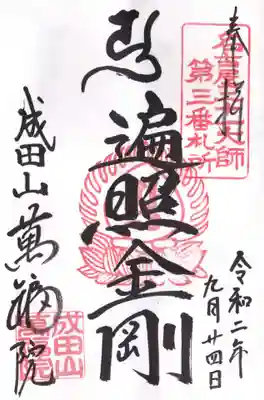 奉拝
名古屋大師
第三番札所
遍照金剛
令和二年
九月廿四日
成田山萬福院
成田山
萬福院